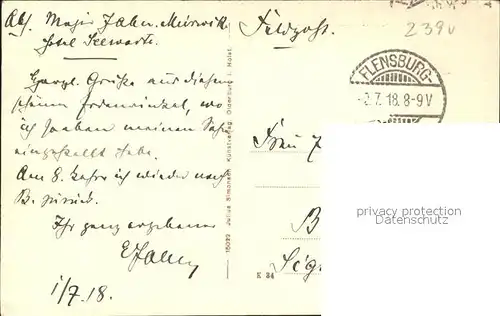 Abs. Major Jahn. Mürwik
Hotel Seewarte
Feldpost.
239v
FLENSBURG-
-2.7.18.8-9V
Herzl. Grüße aus diesem
schönen Erdenwinkel, wo
ich soeben meinen Sohn
eingestellt habe.
Am 8. kehre ich wieder nach
B. zurück.
Ihr ganz ergebener
EJahn
1/7.18.
16022 Julius Simonsen Kunstverlag, Oldenburg i. Holst.
E 34
Frau
B
privacy protection
Datenschutz